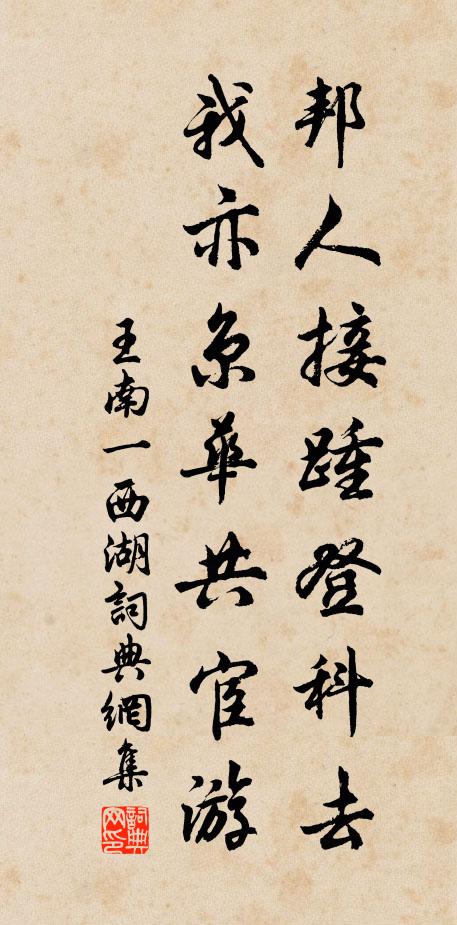 邦人接踵登科去
我亦京華共宦游
王南一西湖詞典網集
詞典網印